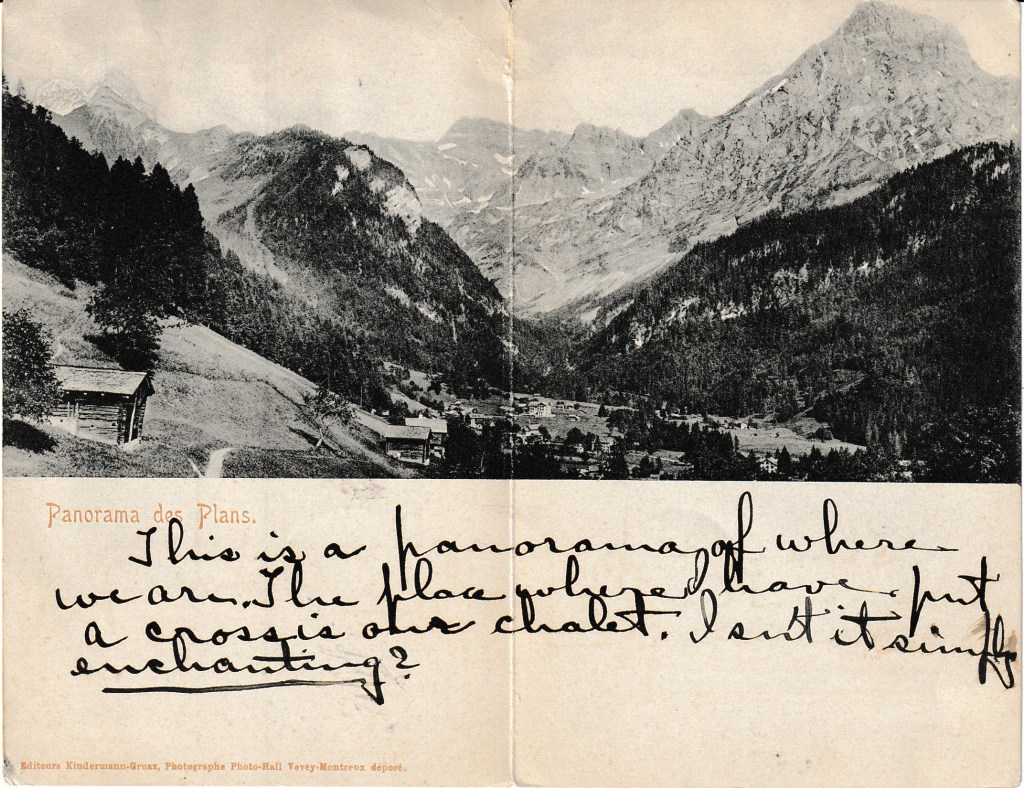 Panorama des Plans.
This is a panorama of where
we are. The place where I have put
a cross is our chalet. Isn't it simply
enchanting?
Editeurs Kindermann-Gruaz, Photographe Photo-Hall Vevey-Montreux déposé.